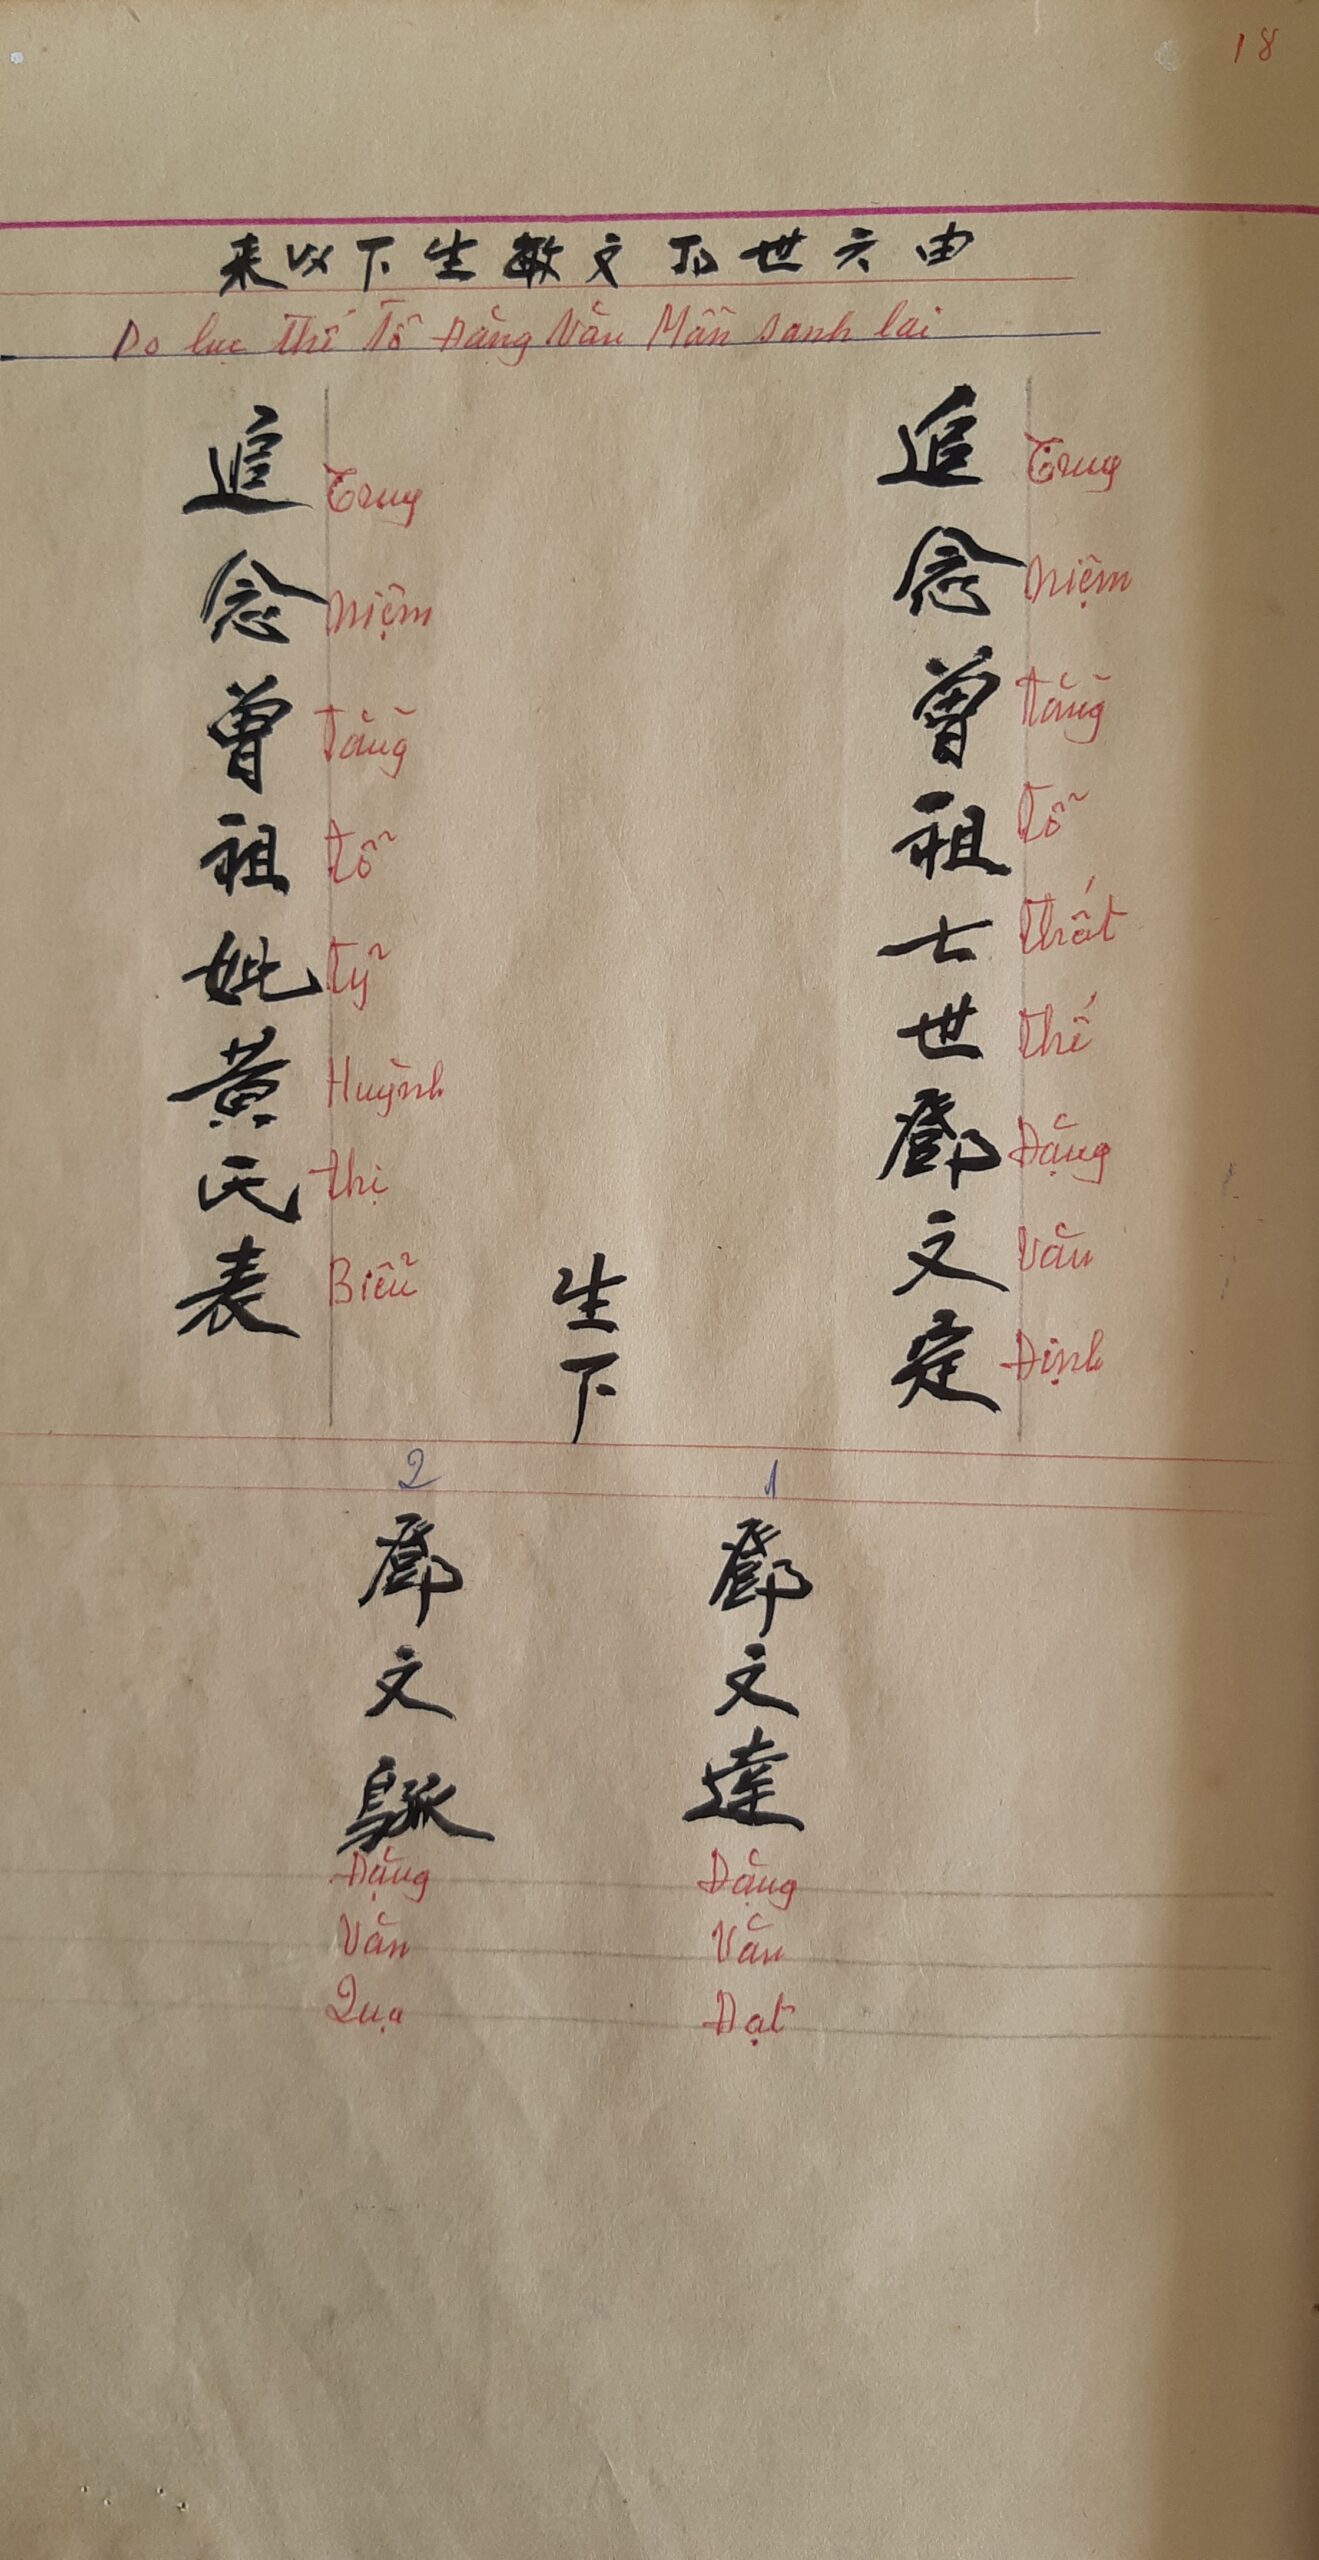 18
由六世文敏生下以来
Do lục thế Tổ Đặng Văn Mẫn sanh lai
追念曾祖七世鄧文定
Truy Niệm tằng tổ thất thế Đặng Văn Định
生下
追念曾祖妣黃氏表
Truy Niệm tằng tổ tỷ Huỳnh thị Biểu
1
鄧文達
Đặng Văn Đạt
2
鄧文
Đặng Văn Quạ